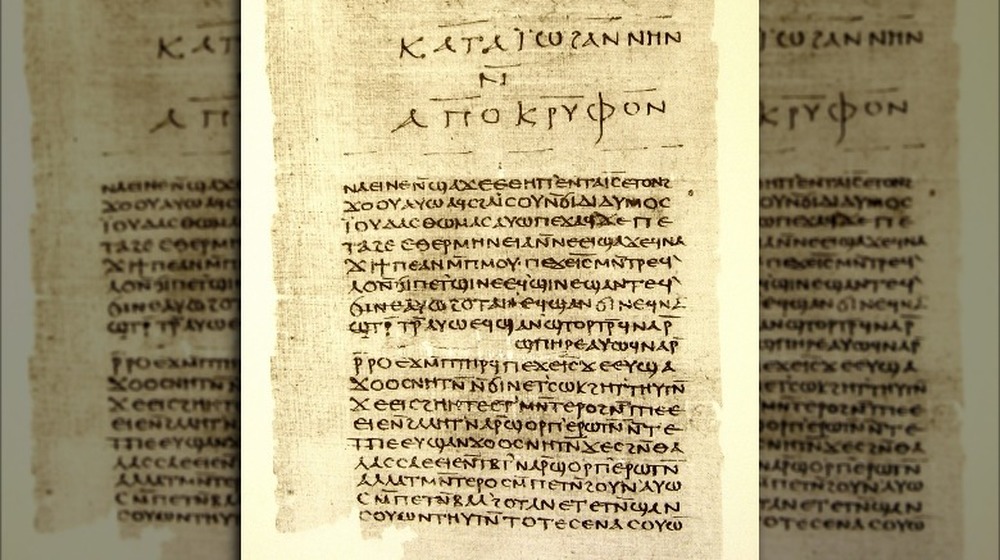 ⲕⲁⲧⲁ ⲓ̈ⲱϩⲁⲛⲛⲏⲛ
ⲛ̄
ⲁⲡⲟⲕⲣⲩⲫⲟⲛ
ⲛⲁⲉⲓⲛⲉⲛ̄ϣⲁϫⲉⲉⲑⲏⲡⲉⲛⲧⲁⲓ̅ⲥ̅ⲉⲧⲟⲛϩ
ϫⲟⲟⲩⲁⲩⲱⲁϥⲥϩⲁⲓⲥⲟⲩⲛ̄ϭⲓⲇⲓⲇⲩⲙⲟⲥ
ⲓ̈ⲟⲩⲇⲁⲥⲑⲱⲙⲁⲥⲁⲩⲱⲡⲉϫⲁϥϫⲉⲡⲉ
ⲧⲁϩⲉⲉⲑⲉⲣⲙⲏⲛⲉⲓⲁⲛ̄ⲛⲉⲉⲓϣⲁϫⲉϥⲛⲁ
ϫⲓϯⲡⲉⲁⲛⲙ̄ⲡⲙⲟⲩⲡⲉϫⲉⲓ̅ⲥ̅ⲙⲛ̄ⲧⲣⲉϥ
ⲗⲟⲛ̄ϭⲓⲡⲉⲧϣⲓⲛⲉⲉϥϣⲓⲛⲉϣⲁⲛⲧⲉϥ
ϭⲓⲛⲉⲁⲩⲱϩⲟⲧⲁⲛⲉϥϣⲁⲛϭⲓⲛⲉϥⲛⲁ
ϣⲧⲣ̄ⲧⲣ̄ⲁⲩⲱⲉϥϣⲁⲛϣⲧⲟⲣⲧⲣ̄ϥⲛⲁⲣ̄
ϣⲡⲏⲣⲉⲁⲩⲱϥⲛⲁⲣ̄
ⲣ̄ⲣⲟⲉϫⲙ̄ⲡⲧⲏⲣϥⲡⲉϫⲉⲓ̅ⲥ̅ϫⲉⲉⲩϣⲁ
ϫⲟⲟⲥⲛⲏⲧⲛ̄ⲛ̄ϭⲓⲛⲉⲧⲥⲱⲕϩⲏⲧⲧⲏⲩⲧⲛ̄
ϫⲉⲉⲓⲥϩⲏⲏⲧⲉⲉⲧⲙⲛ̄ⲧⲉⲣⲟϩⲛ̄ⲧⲡⲉⲉ
ⲉⲓⲉⲛ̄ϩⲁⲗⲏⲧⲛⲁⲣ̄ϣⲟⲣⲡⲉⲣⲱⲧⲛ̄ⲛ̄ⲧⲉ
ⲧⲡⲉⲉⲩϣⲁⲛϫⲟⲟⲥⲛⲏⲧⲛ̄ϫⲉⲥϩⲛ̄ⲑⲁ
ⲗⲁⲥⲥⲁⲉⲉⲓⲉⲛ̄ⲧⲃⲧⲛⲁⲣ̄ϣⲟⲣⲡⲉⲣⲱⲧⲛ̄
ⲁⲗⲗⲁⲧⲙⲛ̄ⲧⲉⲣⲟⲥⲙ̄ⲡⲉⲧⲛ̄ϩⲟⲩⲛⲁⲩⲱ
ⲥⲙ̄ⲡⲉⲧⲛ̄ⲃⲁⲗϩⲟⲧⲁⲛⲉⲧⲉⲧⲛ̄ϣⲁⲛ
ⲥⲟⲩⲱⲛⲧⲏⲩⲧⲛ̄ⲧⲟⲧⲉⲥⲉⲛⲁⲥⲟⲩⲱ